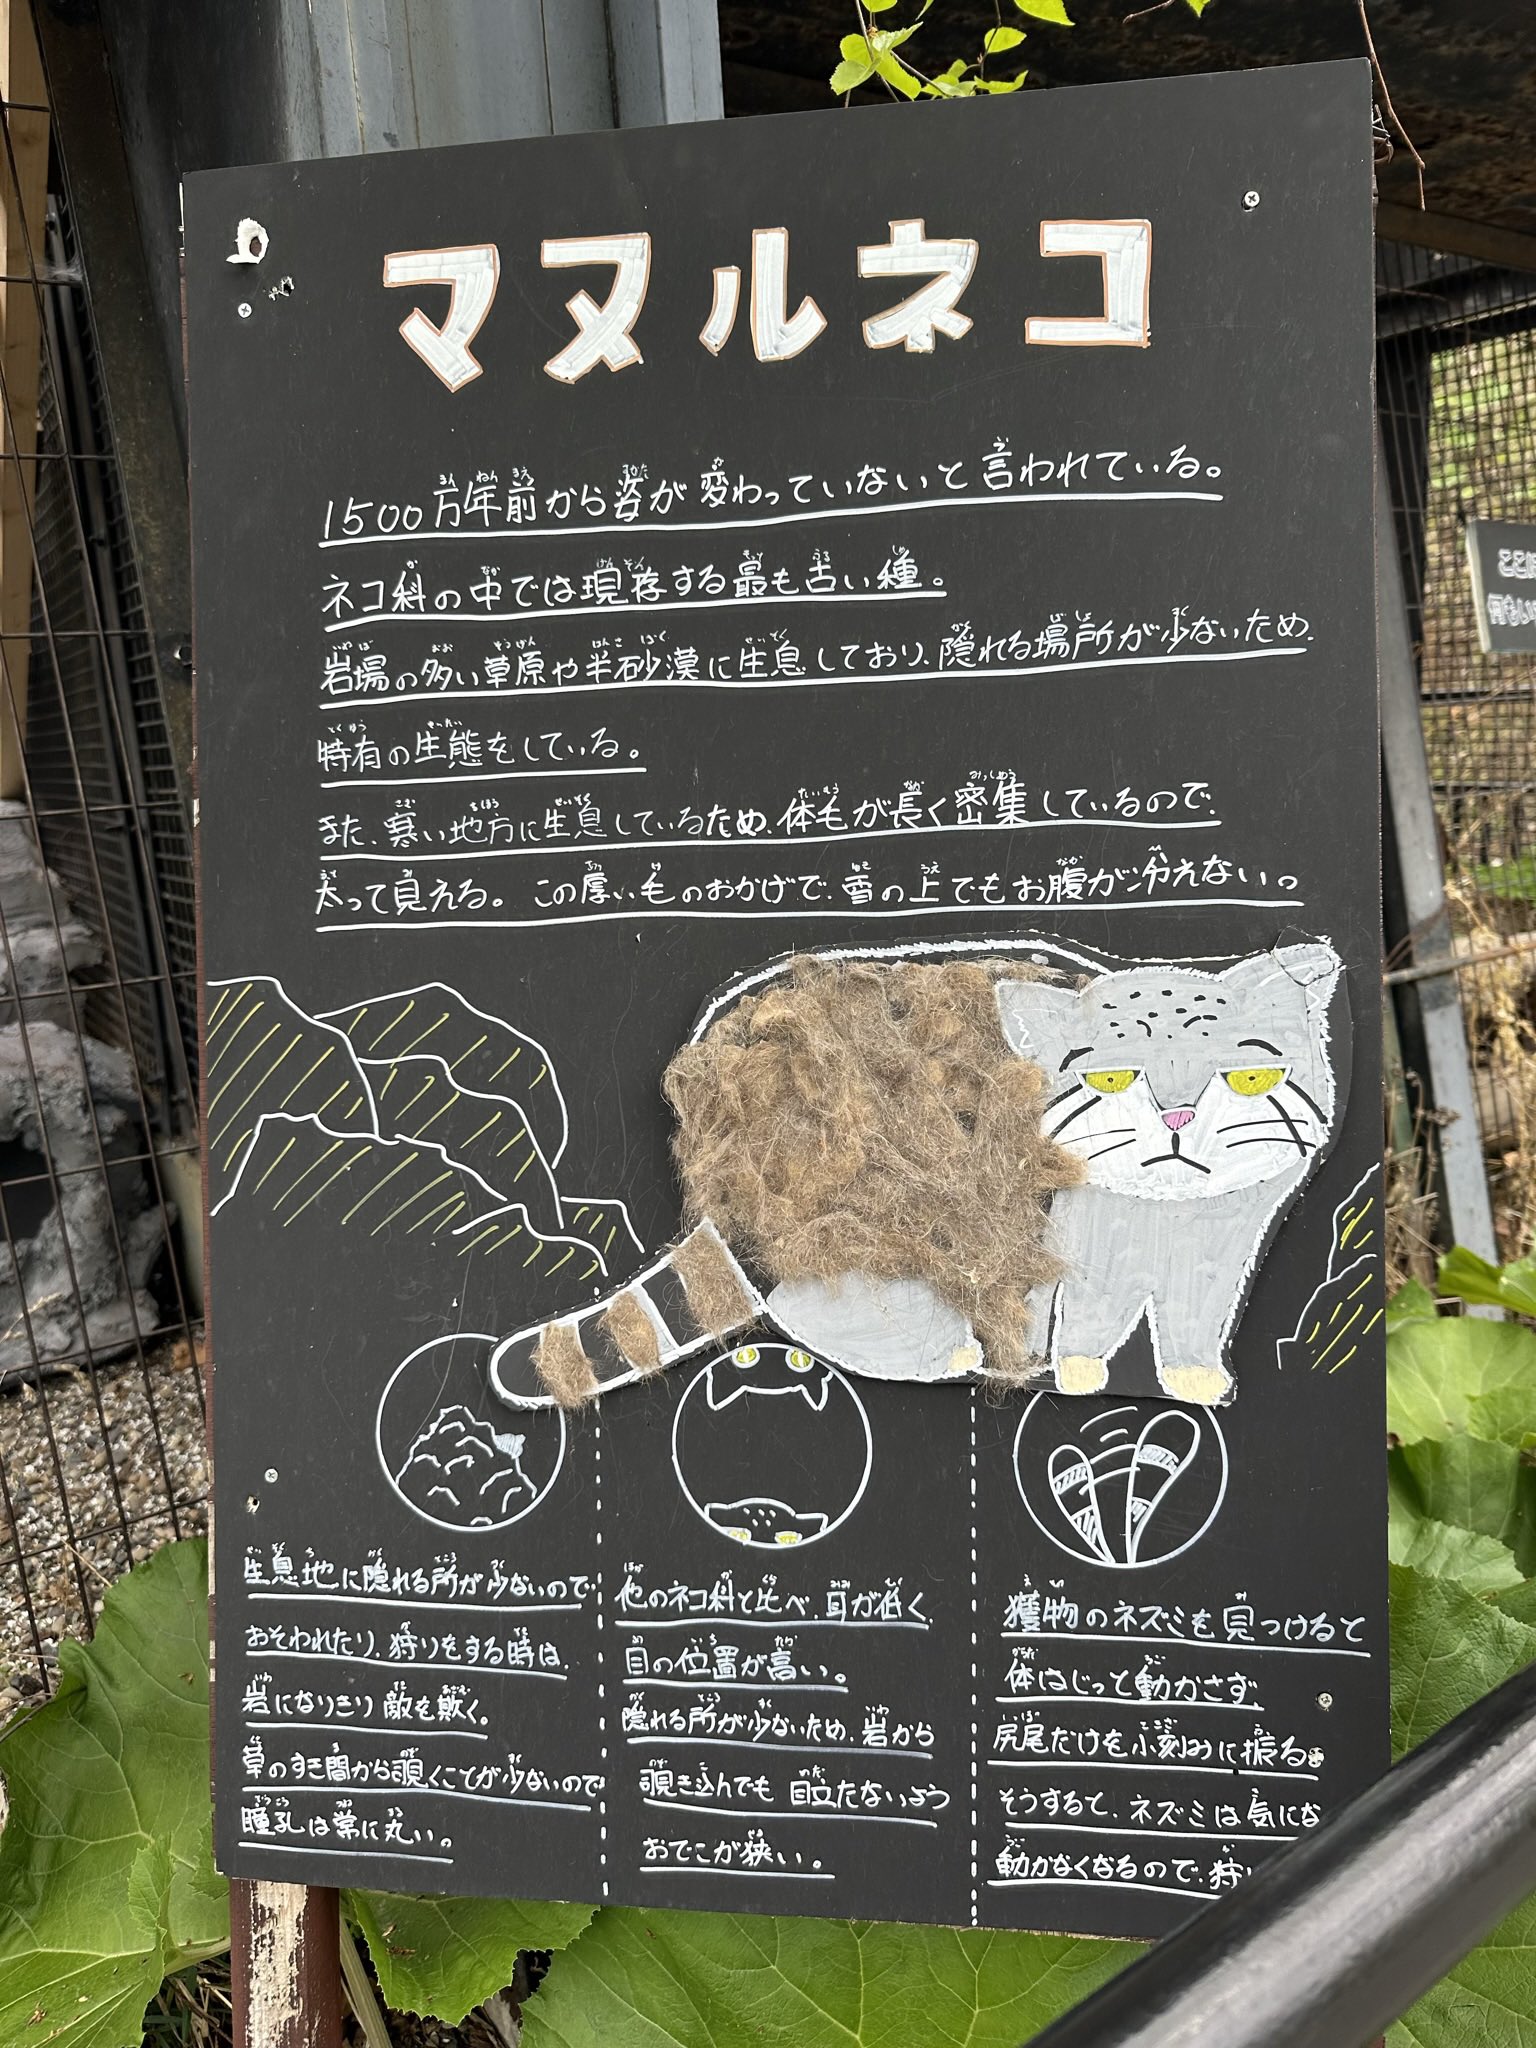 マヌルネコ
1500万年前から姿が変わっていないと言われている。
ネコ科の中では現存する最も古い種。
岩場の多い草原や半砂漠に生息しており、隠れる場所が少ないため、
特有の生態をしている。
また、寒い地方に生息しているため、体毛が長く密集しているので、
太って見える。この厚い毛のおかげで、雪の上でもお腹が冷えない。
生息地に隠れる所が少ないので
おそわれたり、狩りをする時は、
岩になりきり敵を欺く。
草のすき間から覗くことが少ないので
瞳孔は常に丸い。
他のネコ科と比べ、耳が低く、
目の位置が高い。
隠れる所が少ないため、岩から
覗き込んでも目立たないよう
おでこが狭い。
獲物のネズミを見つけると
体はじっと動かさず、
尻尾だけを小刻みに振る。
そうすると、ネズミは気にな
動かなくなるので、狩